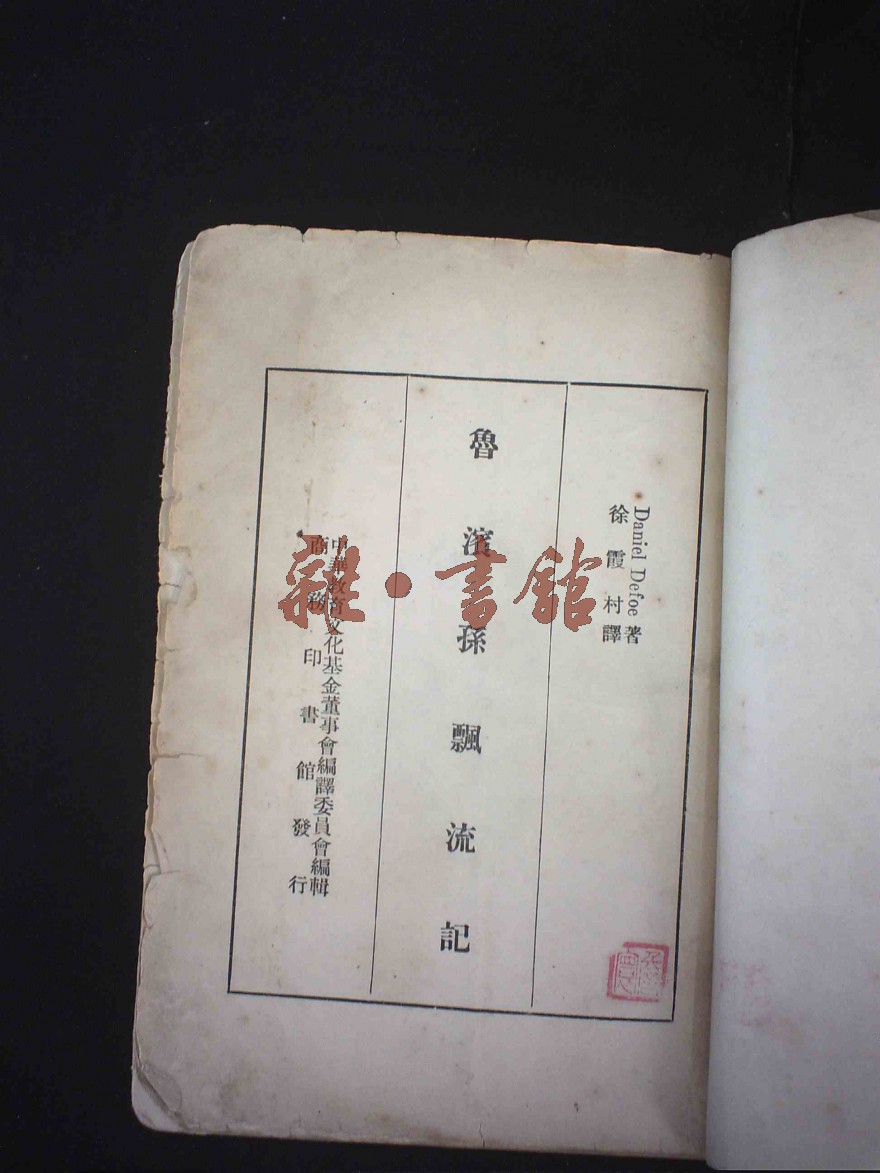 Daniel Defoe著
徐霞村譯
魯濱孫飄流記
中華教育文化基金董事會編譯委員會編輯
商務印書館發行
雜·書館